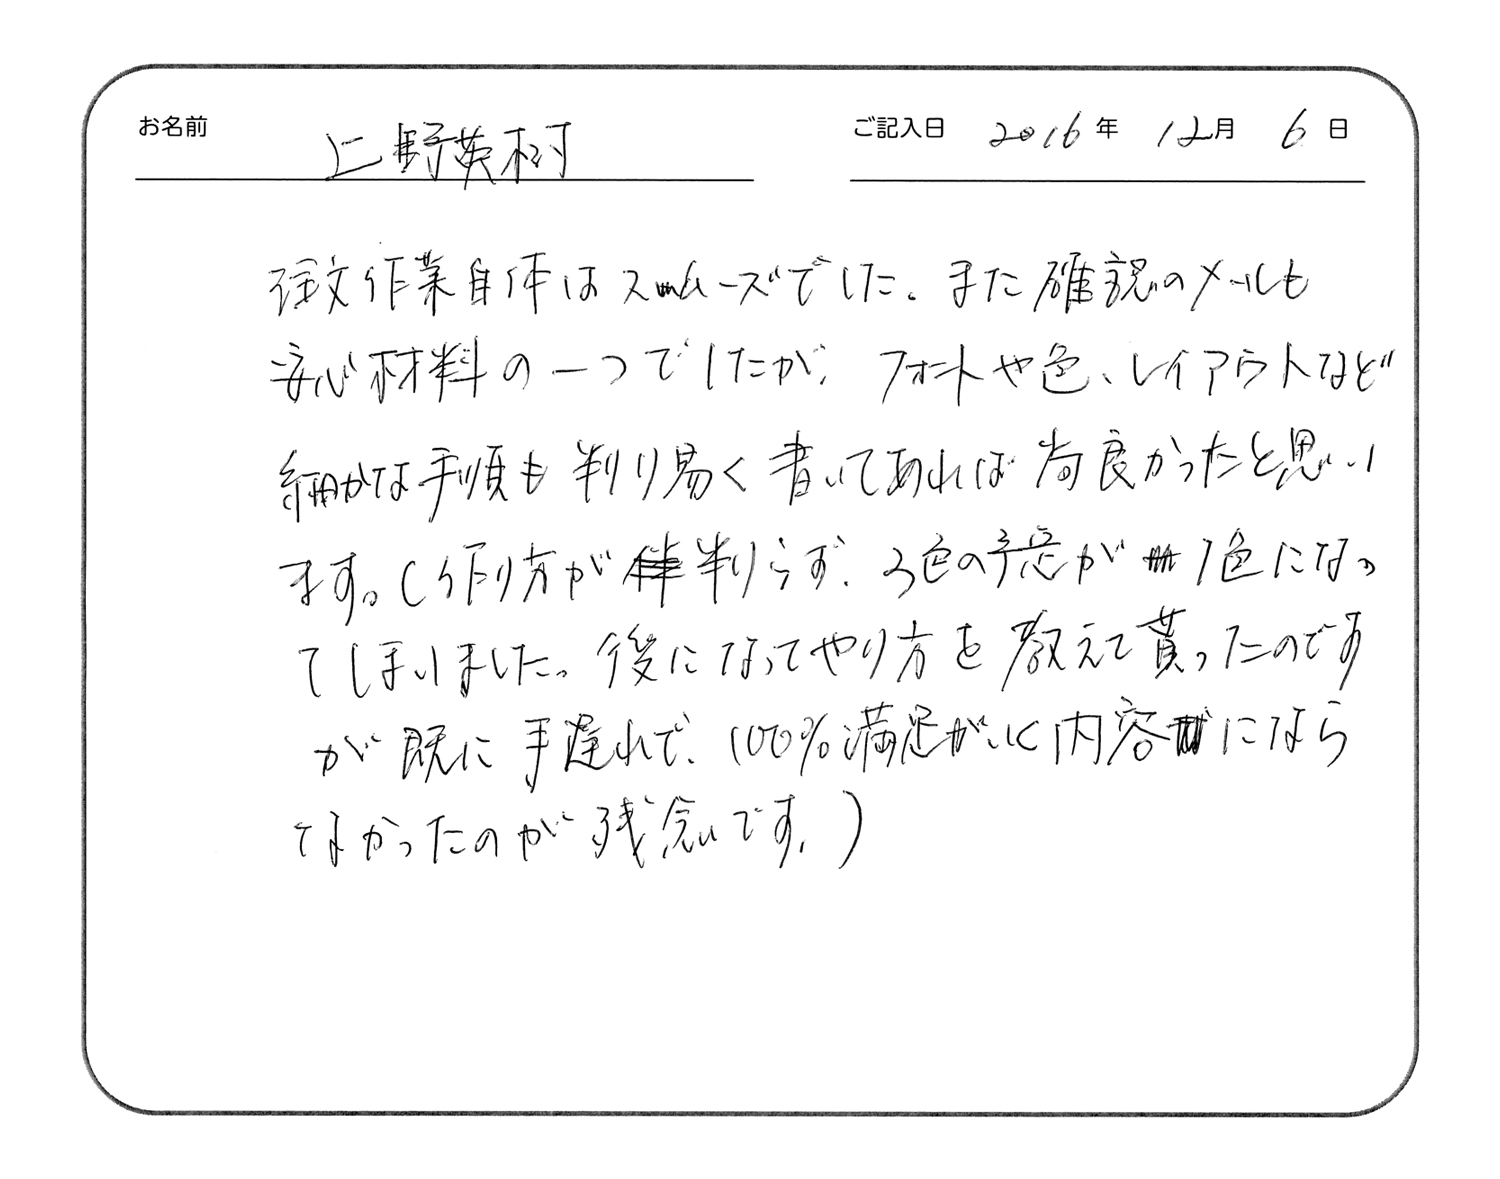 お名前 上野英樹 ご記入日 2016年 12月 6日
注文作業自体はスムーズでした。また確認のメールも
安心材料の一つでしたが、フォントや色、レイアウトなど
細かな手順も判り易く書いてあれば尚良かったと思い
ます。(作り方が判らず、3色の予定が1色になっ
てしまいました。後になってやり方を教えて貰ったのです
が既に手遅れで、100%満足がいく内容になら
なかったのが残念です。)